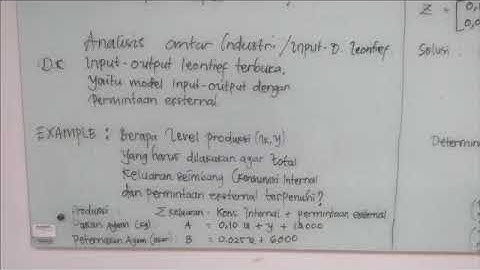 Analisis antar Industri / Input-O. Leontief
Input-output leontief terbuka,
Yaitu model input-output dengan
permintaan eksternal
EXAMPLE : Berapa level produksi (x, y)
yang harus dilakukan agar total
keluaran seimbang (konsumsi internal
dan permintaan eksternal terpenuhi?
Produksi : Σ keluaran = Kons. internal + permintaan eksternal
Pakan Ayam (kg) A = 0,10 x + y +
Peternakan Ayam (ekor) B = 0.025 x + 6000
Z = [0,
0,0
Solusi
Determin